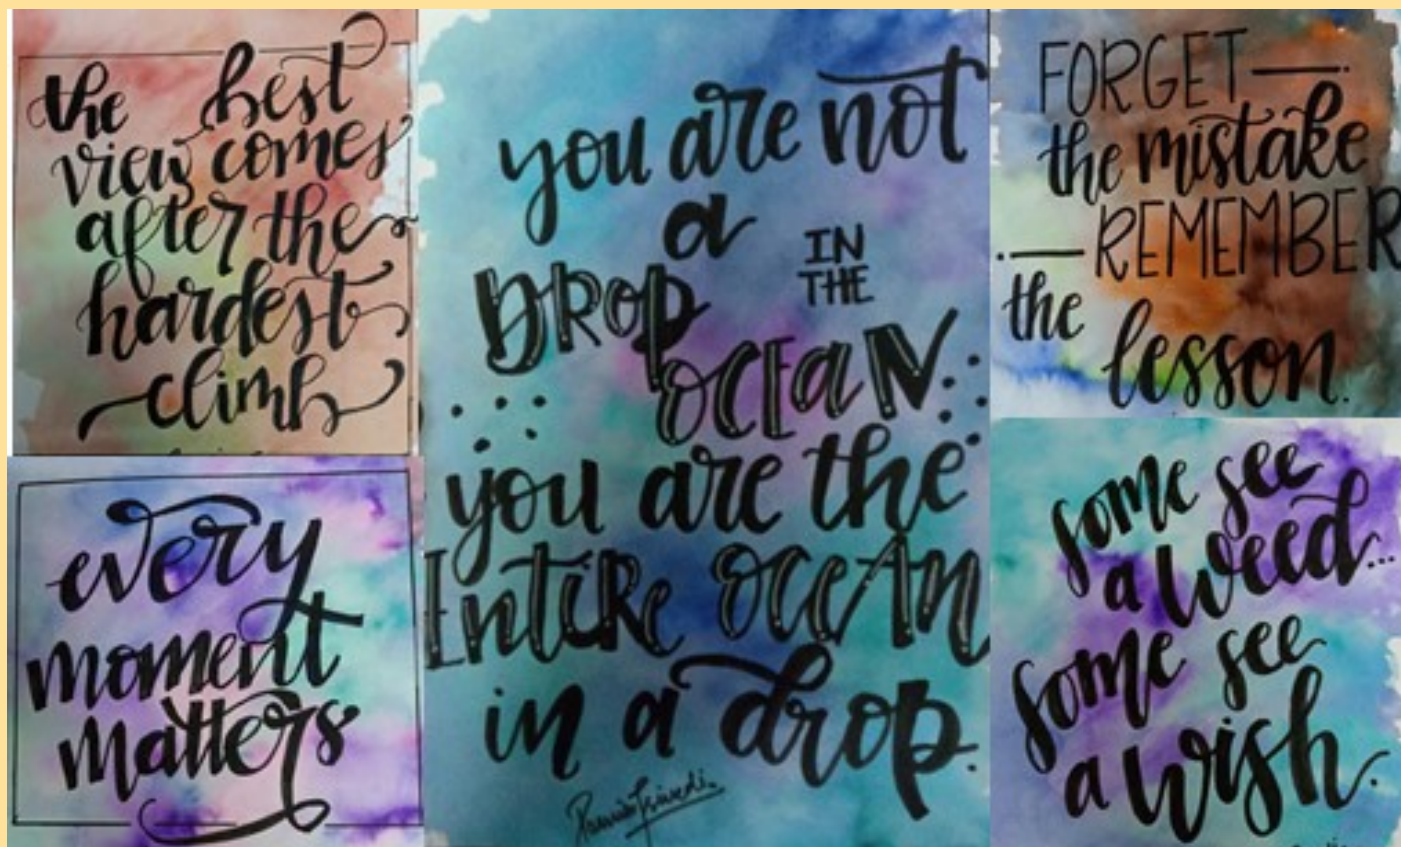 the best
view comes
after the
hardest
climb
every
moment
matters
you are not
a
DROP
IN
THE
OCEAN
you are the
Entire ocean
in a drop.
FORGET
the mistake
REMEMBER
the
lesson.
some see
a weed...
some see
a wish.